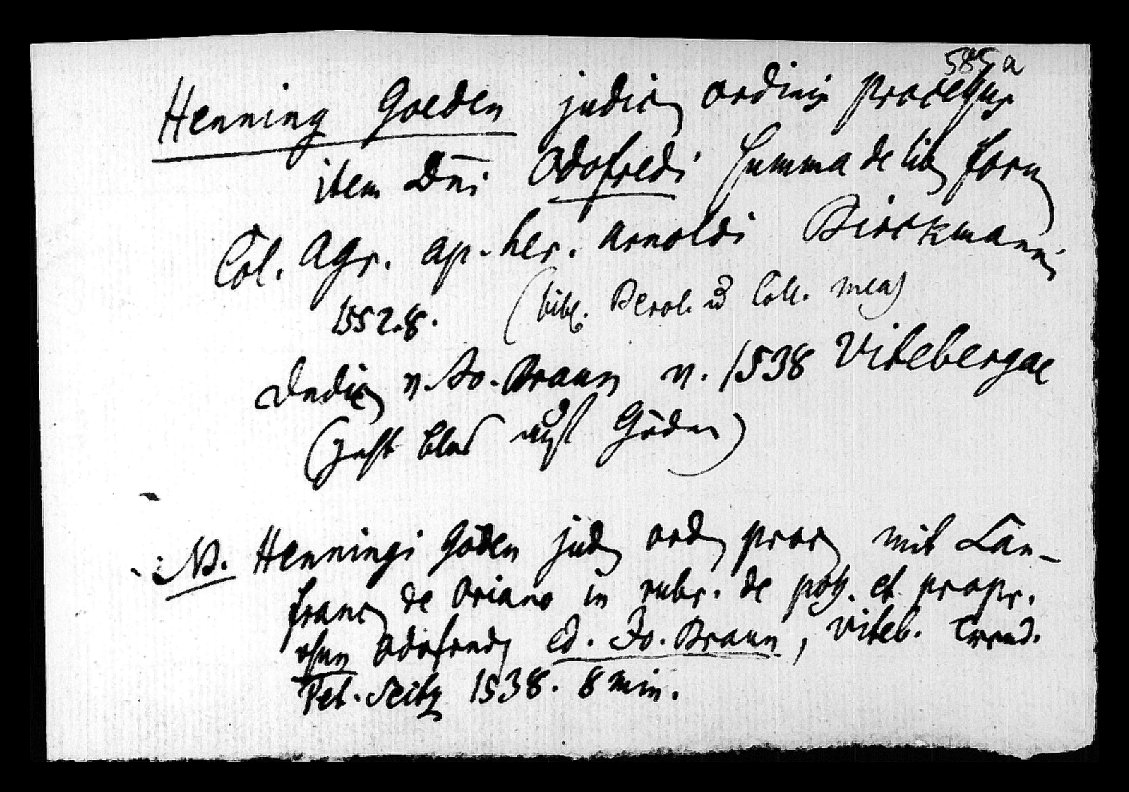 585a
Henning Goeden judic. ordinis processus
item Dni Odofredi Summa de lib. form.
Col. Agr. ap. her. Arnoldi Birckmanni
1552. 8. (bibl. Berol. u. Coll. mea)
Dedic. v. Jo. Braun v. 1538 Vitebergae
(geht blos auf Göden)
NB. Henningi Göden jud. ord. proc. mit Lan-
franc. de Oriano in rubr. de poss. et propr.
ohne Odofred. ed. Jo. Braun, Viteb.
Pet. Seitz 1538. 8 min.